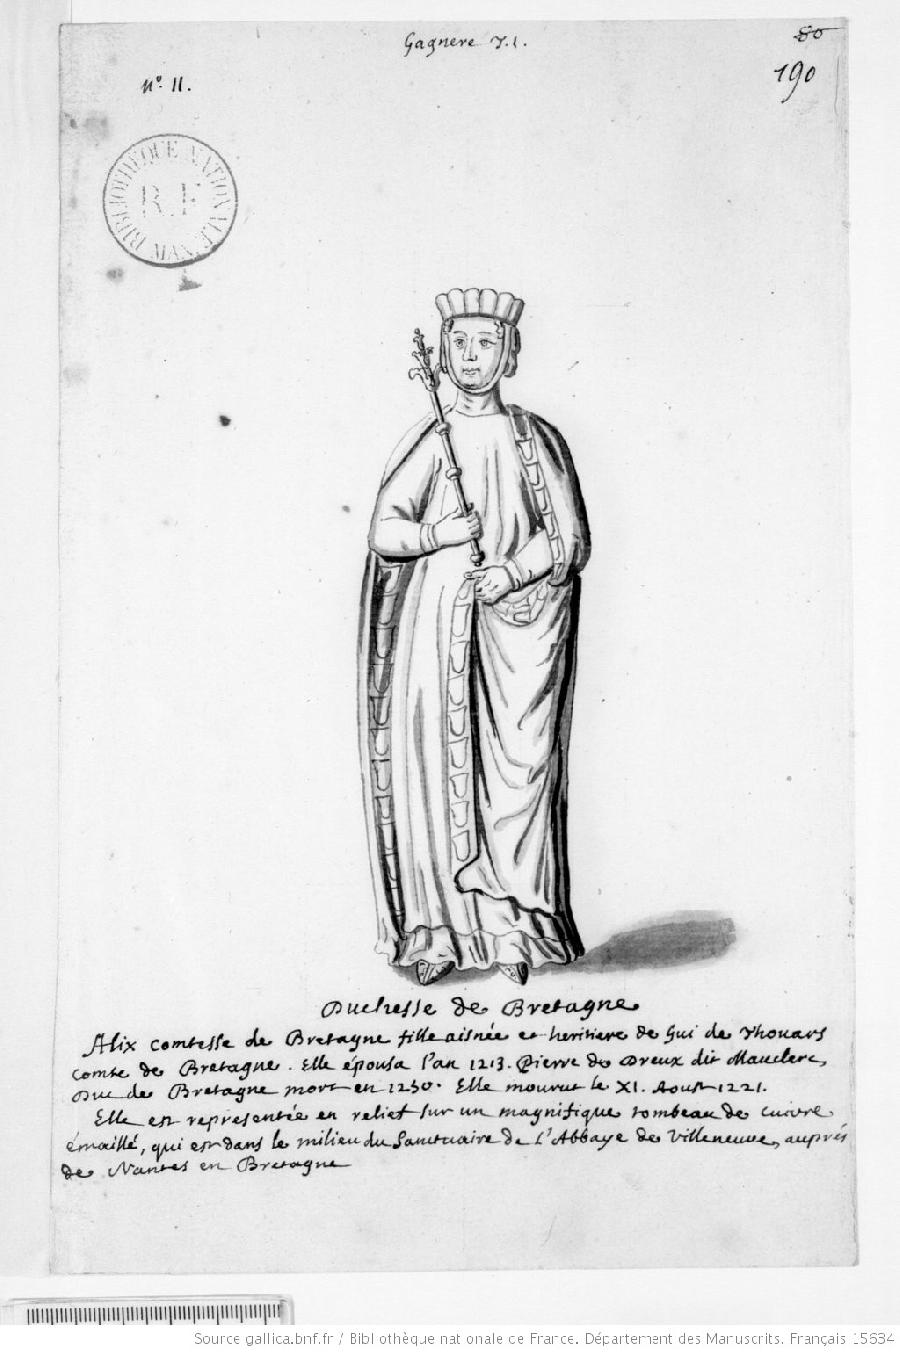 Gagnere T.1.
80
190
N.° 11.
BIBLIOTHÈQUE NATIONALE MAN.
R.F
Duchesse de Bretagne
Alix comtesse de Bretagne fille aisnée et heritiere de Gui de Thouars
comte de Bretagne. Elle épousa l'an 1213. Pierre de Dreux dit Mauclerc,
Duc de Bretagne mort en 1250. Elle mourut le XI. Aoust 1221.
Elle est representée en relief sur un magnifique tombeau de cuivre
émaillé, qui est dans le milieu du Sanctuaire de L'Abbaye de Villeneuve, auprés
de Nantes en Bretagne
Source gallica.bnf.fr / Bibliothèque nationale de France. Département des Manuscrits. Français 15634